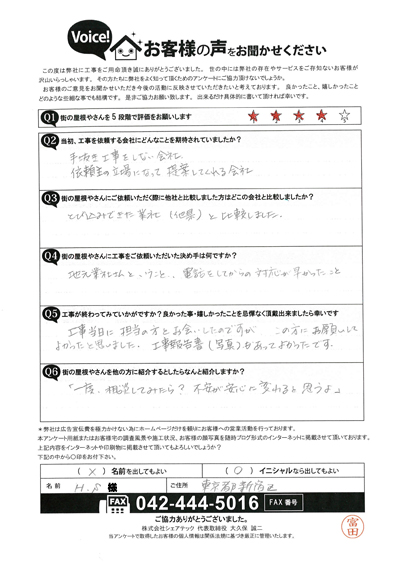 Voice!
お客様の声をお聞かせください
この度は弊社に工事をご用命頂き誠にありがとうございました。世の中には弊社の存在やサービスをご存知ないお客様が
沢山いらっしゃいます。その方たちに弊社をよく知って頂くためのアンケートにご協力頂けないでしょうか。
お客様のご意見をお聞かせいただき今後の活動に反映させていただきたいと考えております。良かったこと、嬉しかったこと
どのような些細な事でも結構です。是非ご協力お願い致します。出来るだけ具体的に書いて頂ければ幸いです。
Q1 街の屋根やさんを5段階で評価をお願いします ★ ★ ★ ★ ☆
Q2 当初、工事を依頼する会社にどんなことを期待されていましたか?
手抜き工事をしない会社
依頼主の立場になって提案してくれる会社
Q3 街の屋根やさんにご依頼いただく際に他社と比較しました方はどこの会社と比較しましたか?
とび込みできた業社(他県)と比較しました。
Q4 街の屋根やさんに工事をご依頼いただいた決め手は何ですか?
地元業社さんということと、電話をしてからの対応が早かったこと
Q5 工事が終わってみていかがですか?良かった事・嬉しかったことを忌憚なく頂戴出来ましたら幸いです
工事当日に担当の方とお会いしたのですが この方にお願いして
よかったと思いました。工事報告書(写真)もあってよかったです。
Q6 街の屋根やさんを他の方に紹介するとしたらなんと紹介しますか?
「一度、相談してみたら? 不安が安心に変わると思うよ」
*弊社は広告宣伝費を極力かけない為にホームページだけを頼りにお客様への営業活動を行っております。
本アンケート用紙またはお客様宅の調査風景や施工状況、お客様の顔写真を随時ブログ形式のインターネットに掲載させて頂いております。
上記内容をインターネットや印刷物に掲載させて頂いてもよろしいでしょうか?
下記の中から〇印をお付下さい。
(×)名前を出してもよい (〇)イニシャルなら出してもよい
名前 H.S 様 ご住所 東京都新宿区
FAX 042-444-5016 FAX番号
ご協力ありがとうございました。
株式会社シェアテック 代表取締役 大久保 誠二
当アンケートで取得したお客様の個人情報は関係法規に基づき厳正に管理いたします。
富田